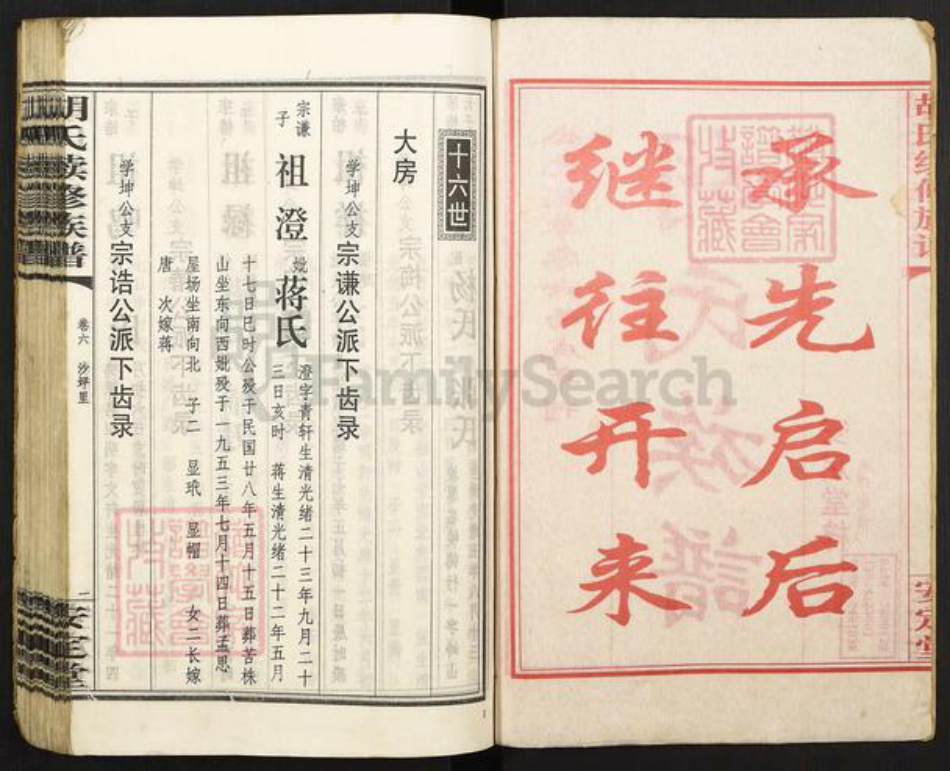 承先启后
继往开来
安定堂
十六世
大房
学坤公支 宗谦公派下齿录
宗谦子 祖澄 妣蒋氏
澄字青轩生清光绪二十三年九月二十
三日亥时 蒋生清光绪二十二年五月
十七日巳时公殁于民国廿八年五月十五日葬苦株
山坐东向西妣殁于一九五三年七月十四日葬孟思
屋场坐南向北 子二 显珉 显帽 女二长嫁
唐 次嫁蒋
学坤公支 宗诰公派下齿录
胡氏续修族谱
卷六 沙坪里
二
安定堂
FamilySearch